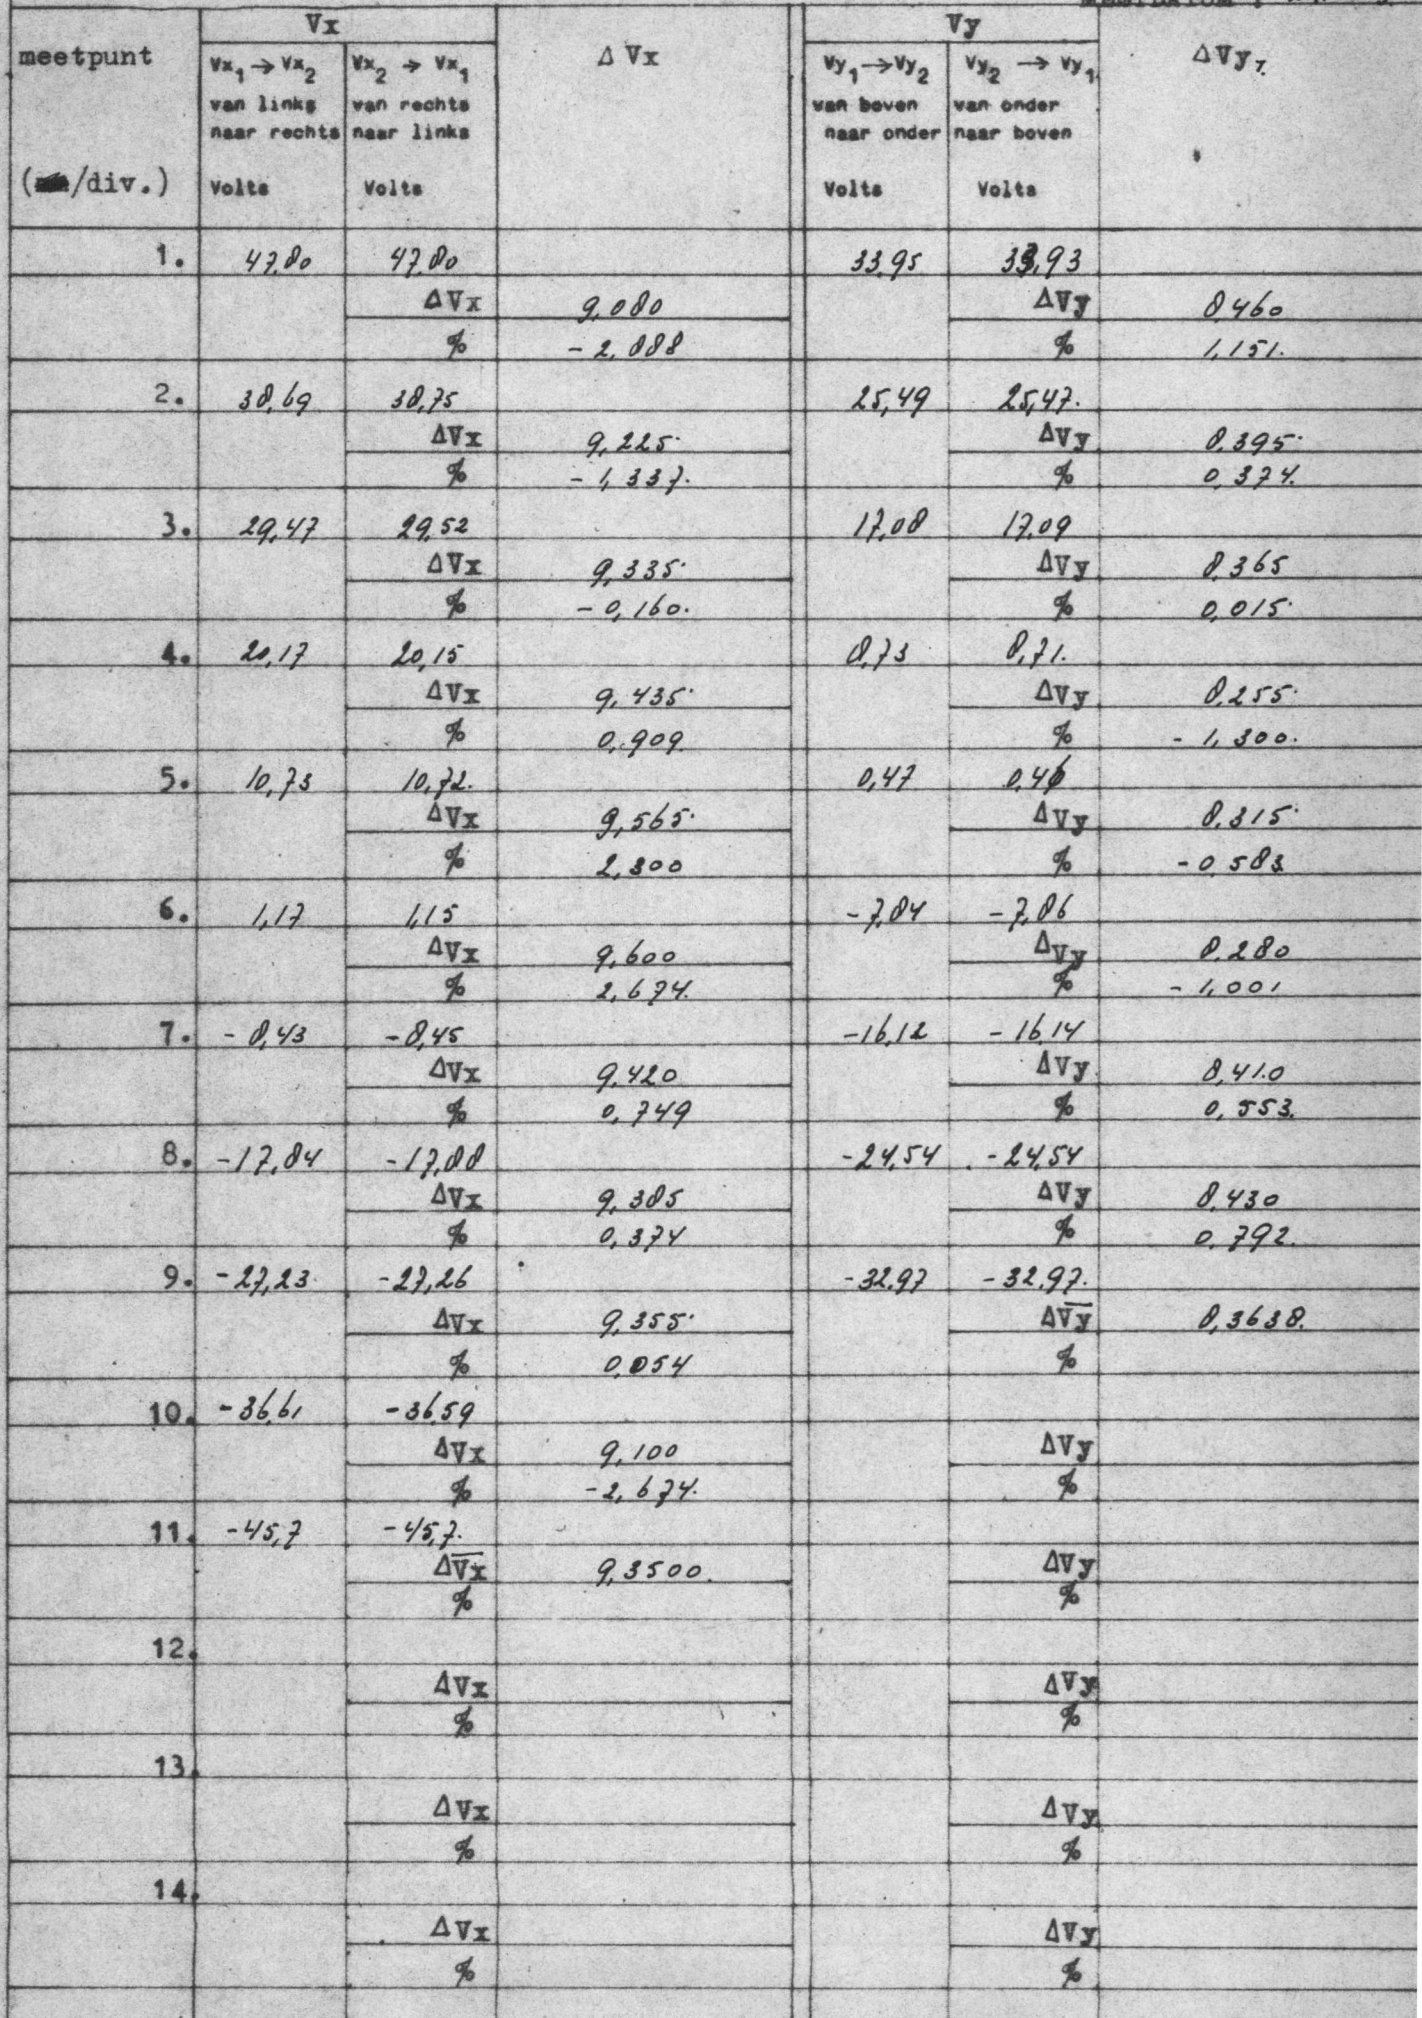 Vx Vy
meetpunt Vx₁ → Vx₂ Vx₂ → Vx₁ Δ Vx Vy₁ → Vy₂ Vy₂ → Vy₁ Δ Vy
van links van rechts van boven van onder
naar rechts naar links naar onder naar boven
( /div.) Volts Volts Volts Volts
1. 47,80 47,80 33,95 33,93
ΔVx 9,080 ΔVy 8,460
% -2,888 % 1,151.
2. 38,69 38,75 25,49 25,47.
ΔVx 9,225. ΔVy 8,395.
% -1,337. % 0,374.
3. 29,47 29,52 17,08 17,09
ΔVx 9,335. ΔVy 8,365
% -0,160. % 0,015.
4. 20,17 20,15 8,73 8,71.
ΔVx 9,435. ΔVy 8,255.
% 0,909. % -1,300.
5. 10,73 10,72. 0,47 0,46
ΔVx 9,565. ΔVy 8,315.
% 2,300 % -0,583
6. 1,17 1,15 -7,84 -7,86
ΔVx 9,600 ΔVy 8,280
% 2,674. % -1,001
7. -8,43 -8,45 -16,12 -16,14
ΔVx 9,420 ΔVy 8,410
% 0,749 % 0,553.
8. -17,84 -17,88 -24,54 -24,54
ΔVx 9,385 ΔVy 8,430
% 0,374 % 0,792.
9. -27,23. -27,26 -32,97 -32,97.
ΔVx 9,355. ΔV̅y̅ 8,3638.
% 0,054 %
10. -36,61 -36,59
ΔVx 9,100 ΔVy
% -2,674. %
11. -45,7 -45,7.
ΔV̅x̅ 9,3500. ΔVy
% %
12.
ΔVx ΔVy
% %
13.
ΔVx ΔVy
% %
14.
ΔVx ΔVy
% %